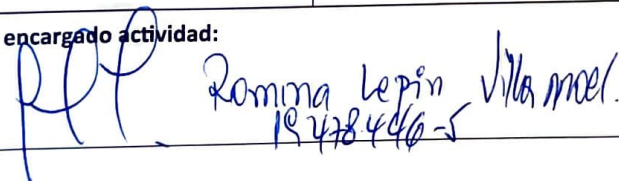 encargado actividad:
Romina Lepin Villa moel.
19478446-5